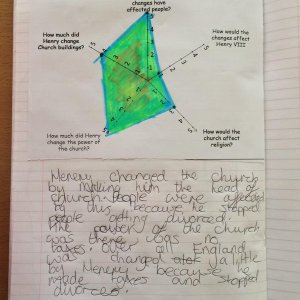 changes have
affected people?
How much did
Henry change
Church buildings?
How would the
changes affect
Henry VIII
How much did Henry
change the power of
the church?
How would the
church affect
religion?
Henery changed the church
by making him the head of
church. People were affected
by this because he stopped
people getting divorced.
The power of the church
was there was no
taxes. over all England
was changed alot a little
by Henery because he
made takes and stopped
divorces.